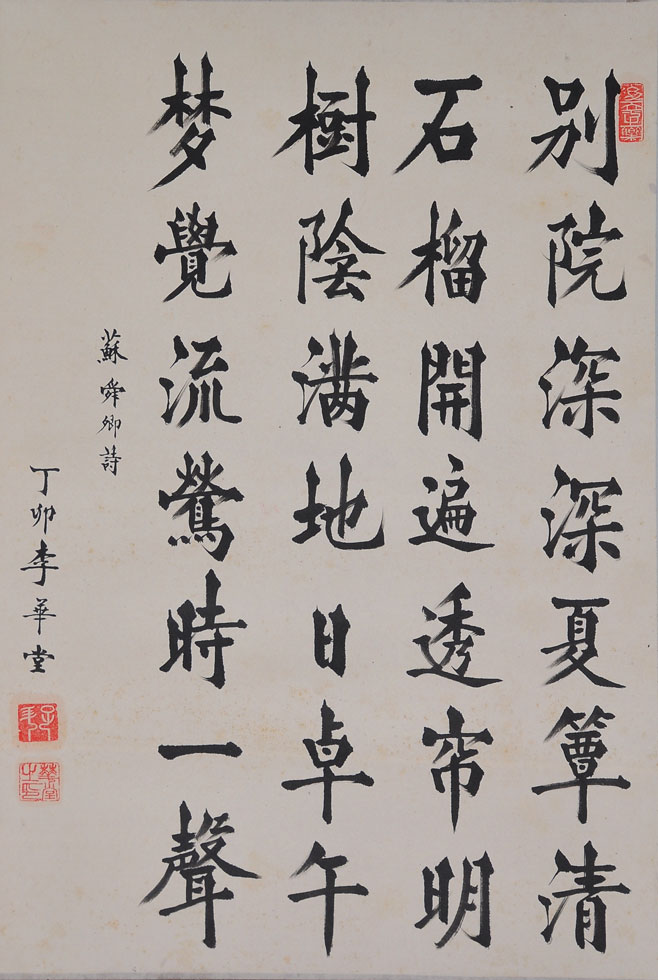 别院深深夏簟清
石榴開遍透帘明
樹陰满地日卓午
梦覺流鶯時一聲
蘇舜卿詩
丁卯李華堂